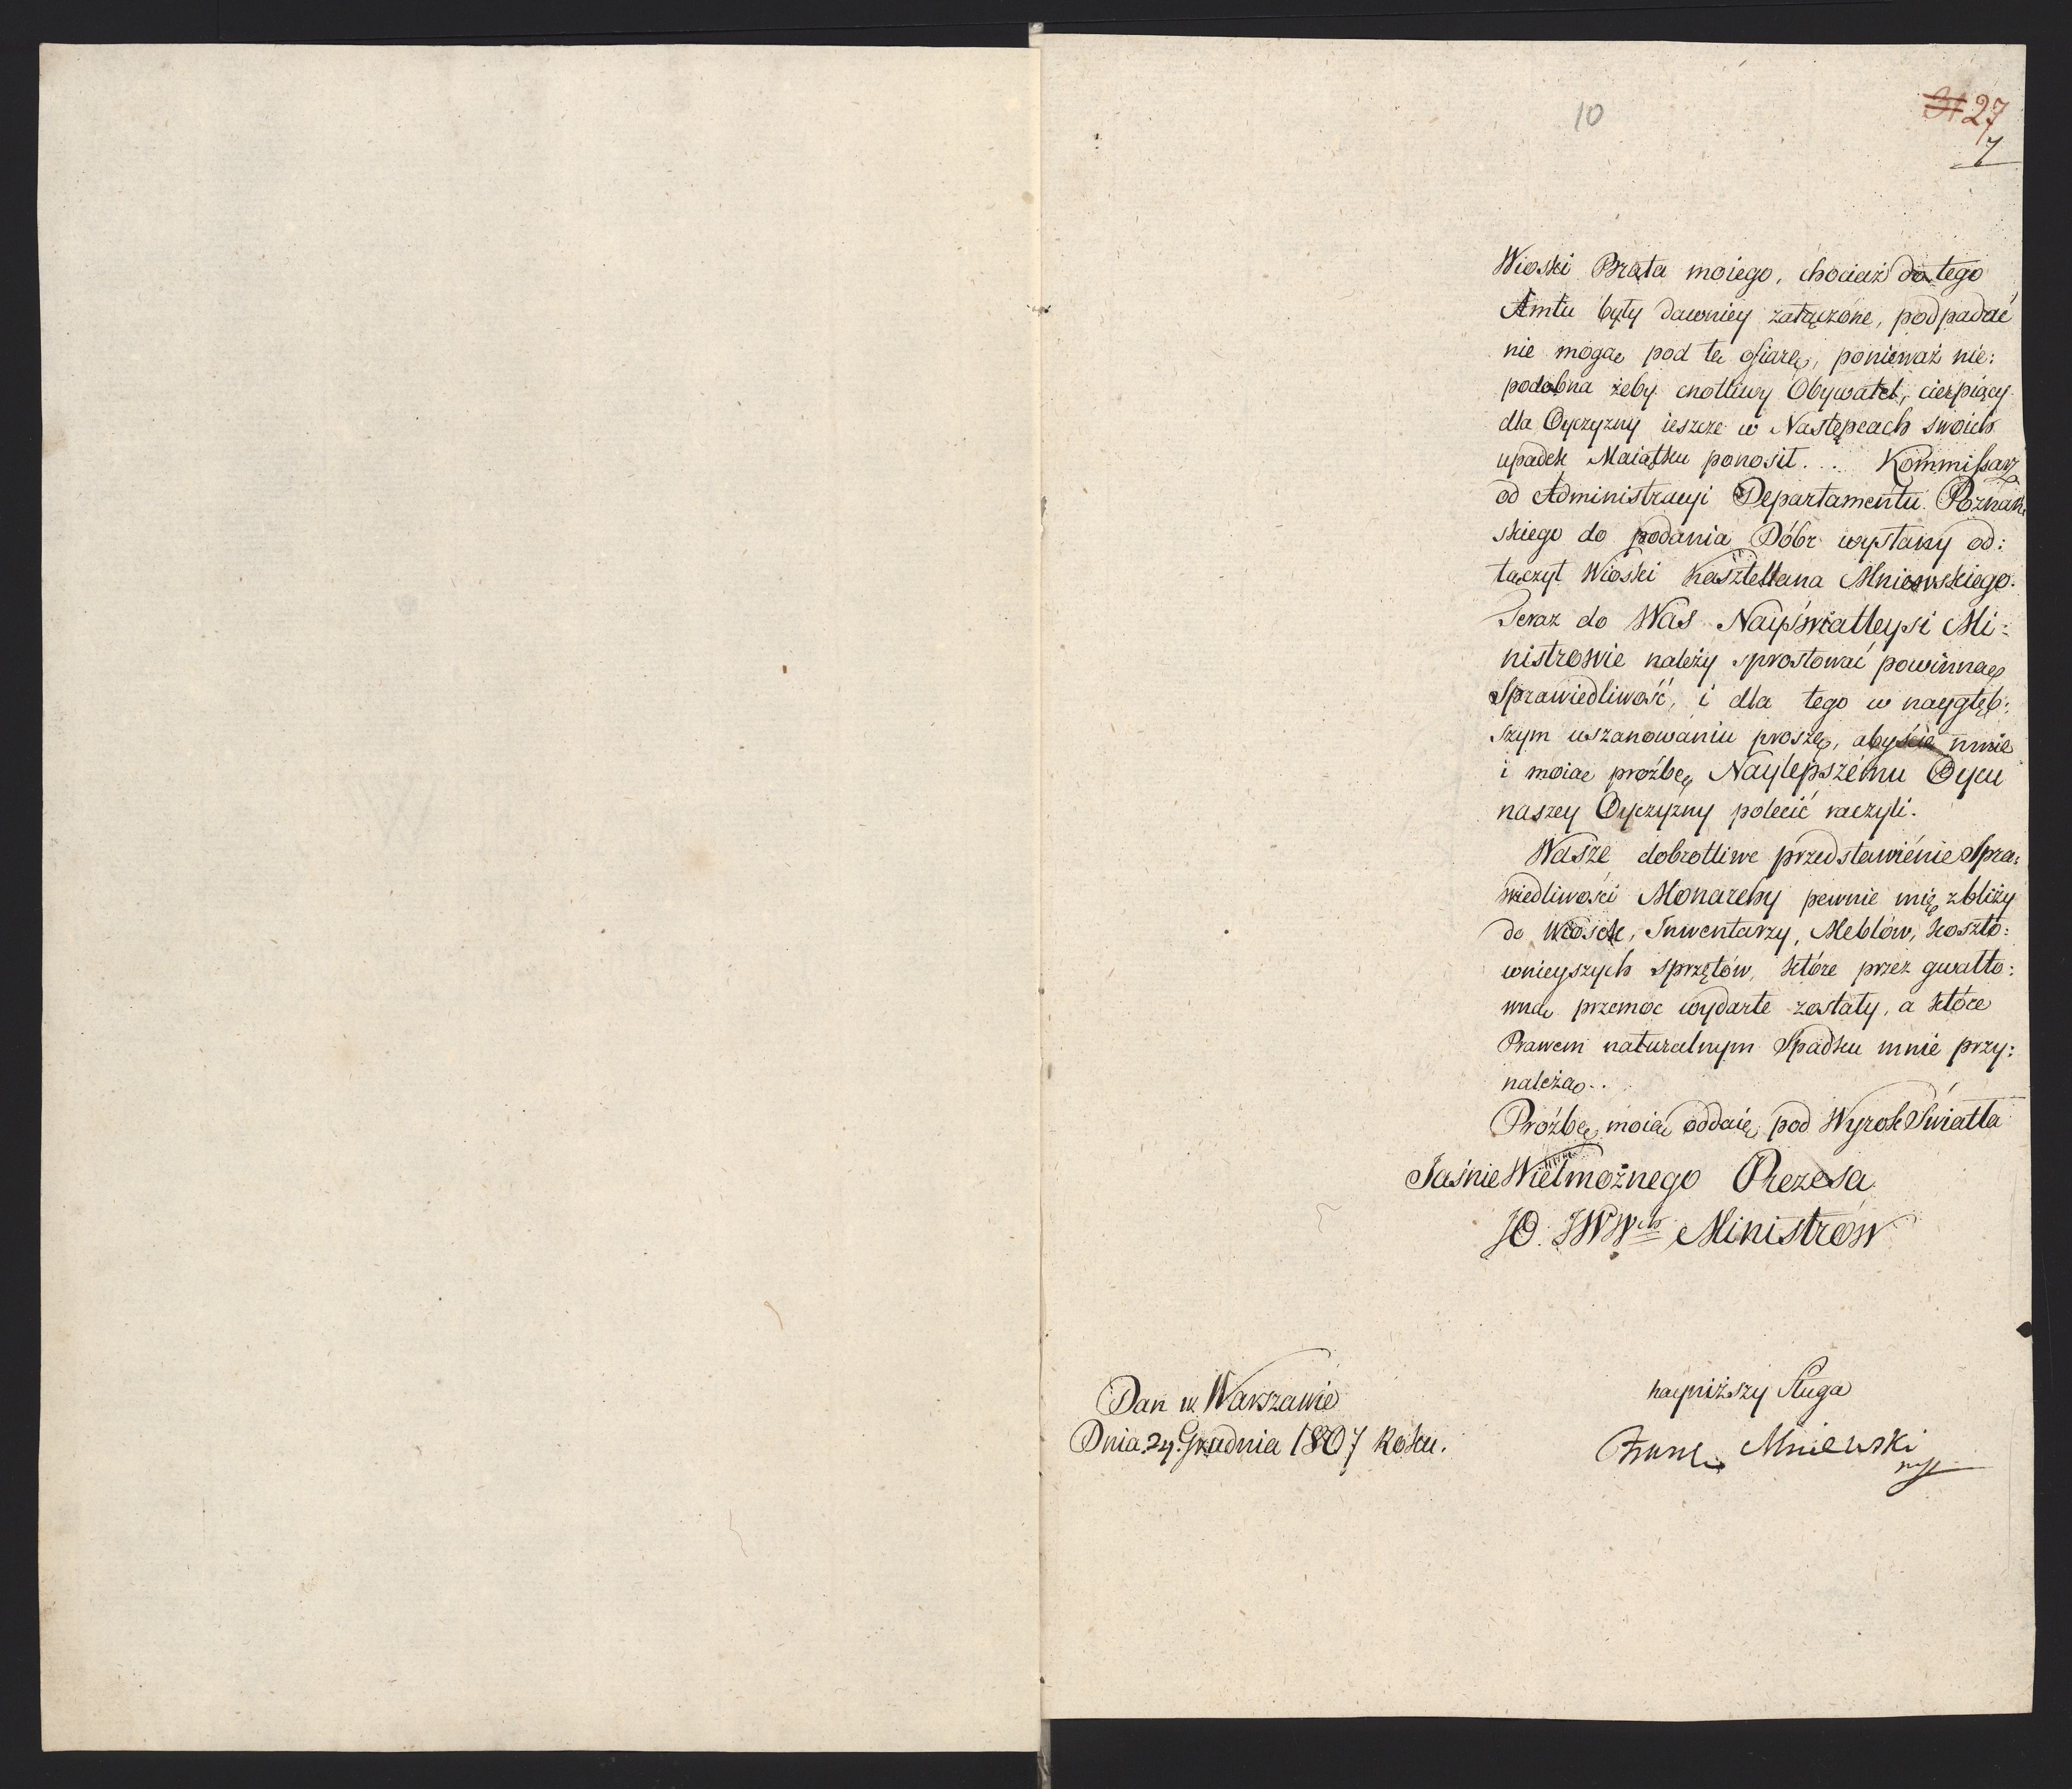 10
27
7
Wioski Brata moiego, chociaż do tego
Amtu były dawniey załączone, podpadać
nie mogą pod tę ofiarę, ponieważ nie:
podobna żeby cnotliwy Obywatel, cierpiący
dla Oyczyzny ieszcze w Następcach swoich
upadek Maiątku ponosił... Kommissarz
od Administracyi Departamentu Poznań:
skiego do podania Dóbr wysłany od:
łączył Wioski Kasztellana Mniewskiego.
Teraz do Was Nayświatleysi Mi:
nistrowie należy sprostować powinną
Sprawiedliwość, i dla tego w naygłęb:
szym uszanowaniu proszę, abyście mnie
i moią proźbę Naylepszemu Oycu
naszey Oyczyzny polecić raczyli.
Wasze dobrotliwe przedstawienie Spra:
wiedliwości Monarchy pewnie mię zbliży
do Wiosek, Inwentarzy, Meblów, koszto:
wnieyszych sprzętów, które przez gwałto:
wną przemoc wydarte zostały, a które
Prawem naturalnym Spadku mnie przy:
należą..
Proźbę moią oddaię pod Wyrok Światła
Jaśnie Wielmożnego Prezesa
JO. JWWch Ministrów
Dan w Warszawie
Dnia 24 Grudnia 1807 Roku.
nayniższy Sługa
Mniewski
mp